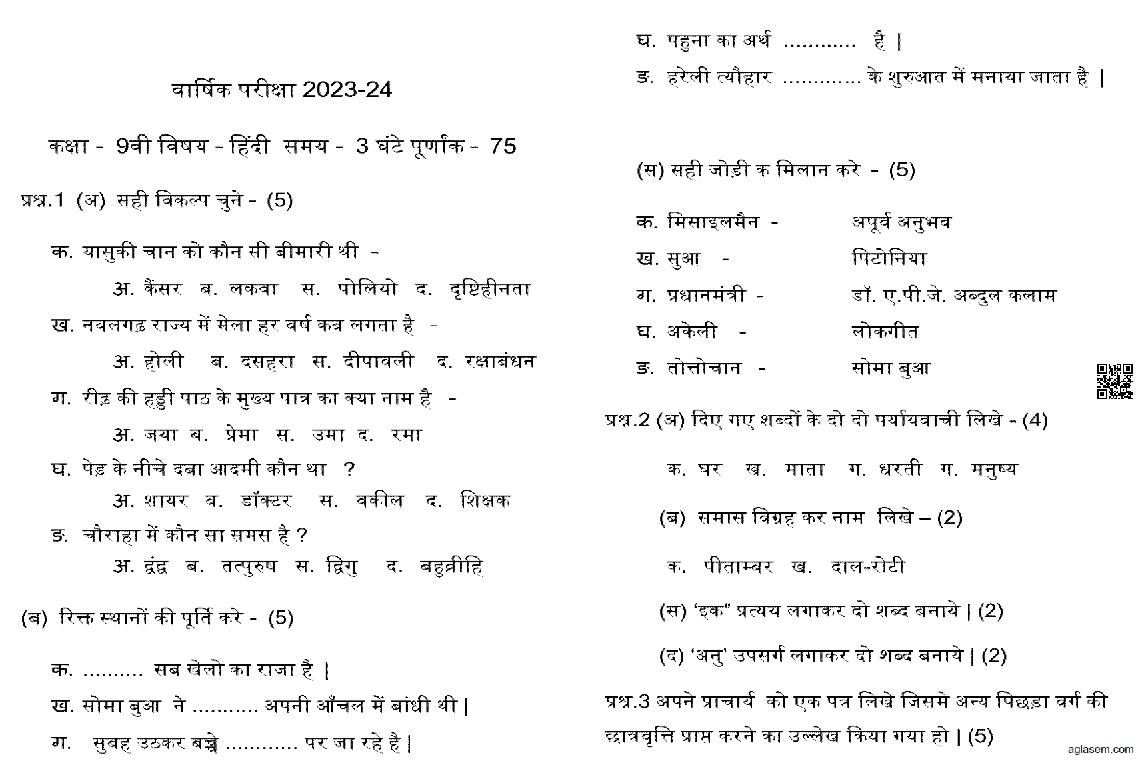 वार्षिक परीक्षा 2023-24
कक्षा - 9वी विषय - हिंदी समय - 3 घंटे पूर्णांक - 75
प्रश्न.1 (अ) सही विकल्प चुने - (5)
क. यासुकी चान को कौन सी बीमारी थी -
अ. कैंसर ब. लकवा स. पोलियो द. दृष्टिहीनता
ख. नवलगढ़ राज्य में मेला हर वर्ष कब लगता है -
अ. होली ब. दसहरा स. दीपावली द. रक्षाबंधन
ग. रीढ़ की हड्डी पाठ के मुख्य पात्र का क्या नाम है -
अ. जया ब. प्रेमा स. उमा द. रमा
घ. पेड़ के नीचे दबा आदमी कौन था ?
अ. शायर ब. डॉक्टर स. वकील द. शिक्षक
ङ. चौराहा में कौन सा समस है ?
अ. द्वंद्व ब. तत्पुरुष स. द्विगु द. बहुव्रीहि
(ब) रिक्त स्थानों की पूर्ति करे - (5)
क. .......... सब खेलो का राजा है |
ख. सोमा बुआ ने ........... अपनी आँचल में बांधी थी |
ग. सुबह उठकर बच्चे ............ पर जा रहे है |
घ. पहुना का अर्थ ............ है |
ङ. हरेली त्यौहार ............. के शुरुआत में मनाया जाता है |
(स) सही जोड़ी क मिलान करे - (5)
क. मिसाइलमैन - अपूर्व अनुभव
ख. सुआ - पिटोनिया
ग. प्रधानमंत्री - डॉ. ए.पी.जे. अब्दुल कलाम
घ. अकेली - लोकगीत
ङ. तोत्तोचान - सोमा बुआ
प्रश्न.2 (अ) दिए गए शब्दों के दो दो पर्यायवाची लिखे - (4)
क. घर ख. माता ग. धरती ग. मनुष्य
(ब) समास विग्रह कर नाम लिखे – (2)
क. पीताम्बर ख. दाल-रोटी
(स) ‘इक” प्रत्यय लगाकर दो शब्द बनाये | (2)
(द) ‘अनु’ उपसर्ग लगाकर दो शब्द बनाये | (2)
प्रश्न.3 अपने प्राचार्य को एक पत्र लिखे जिसमे अन्य पिछड़ा वर्ग की
छात्रवृत्ति प्राप्त करने का उल्लेख किया गया हो | (5)
aglasem.com